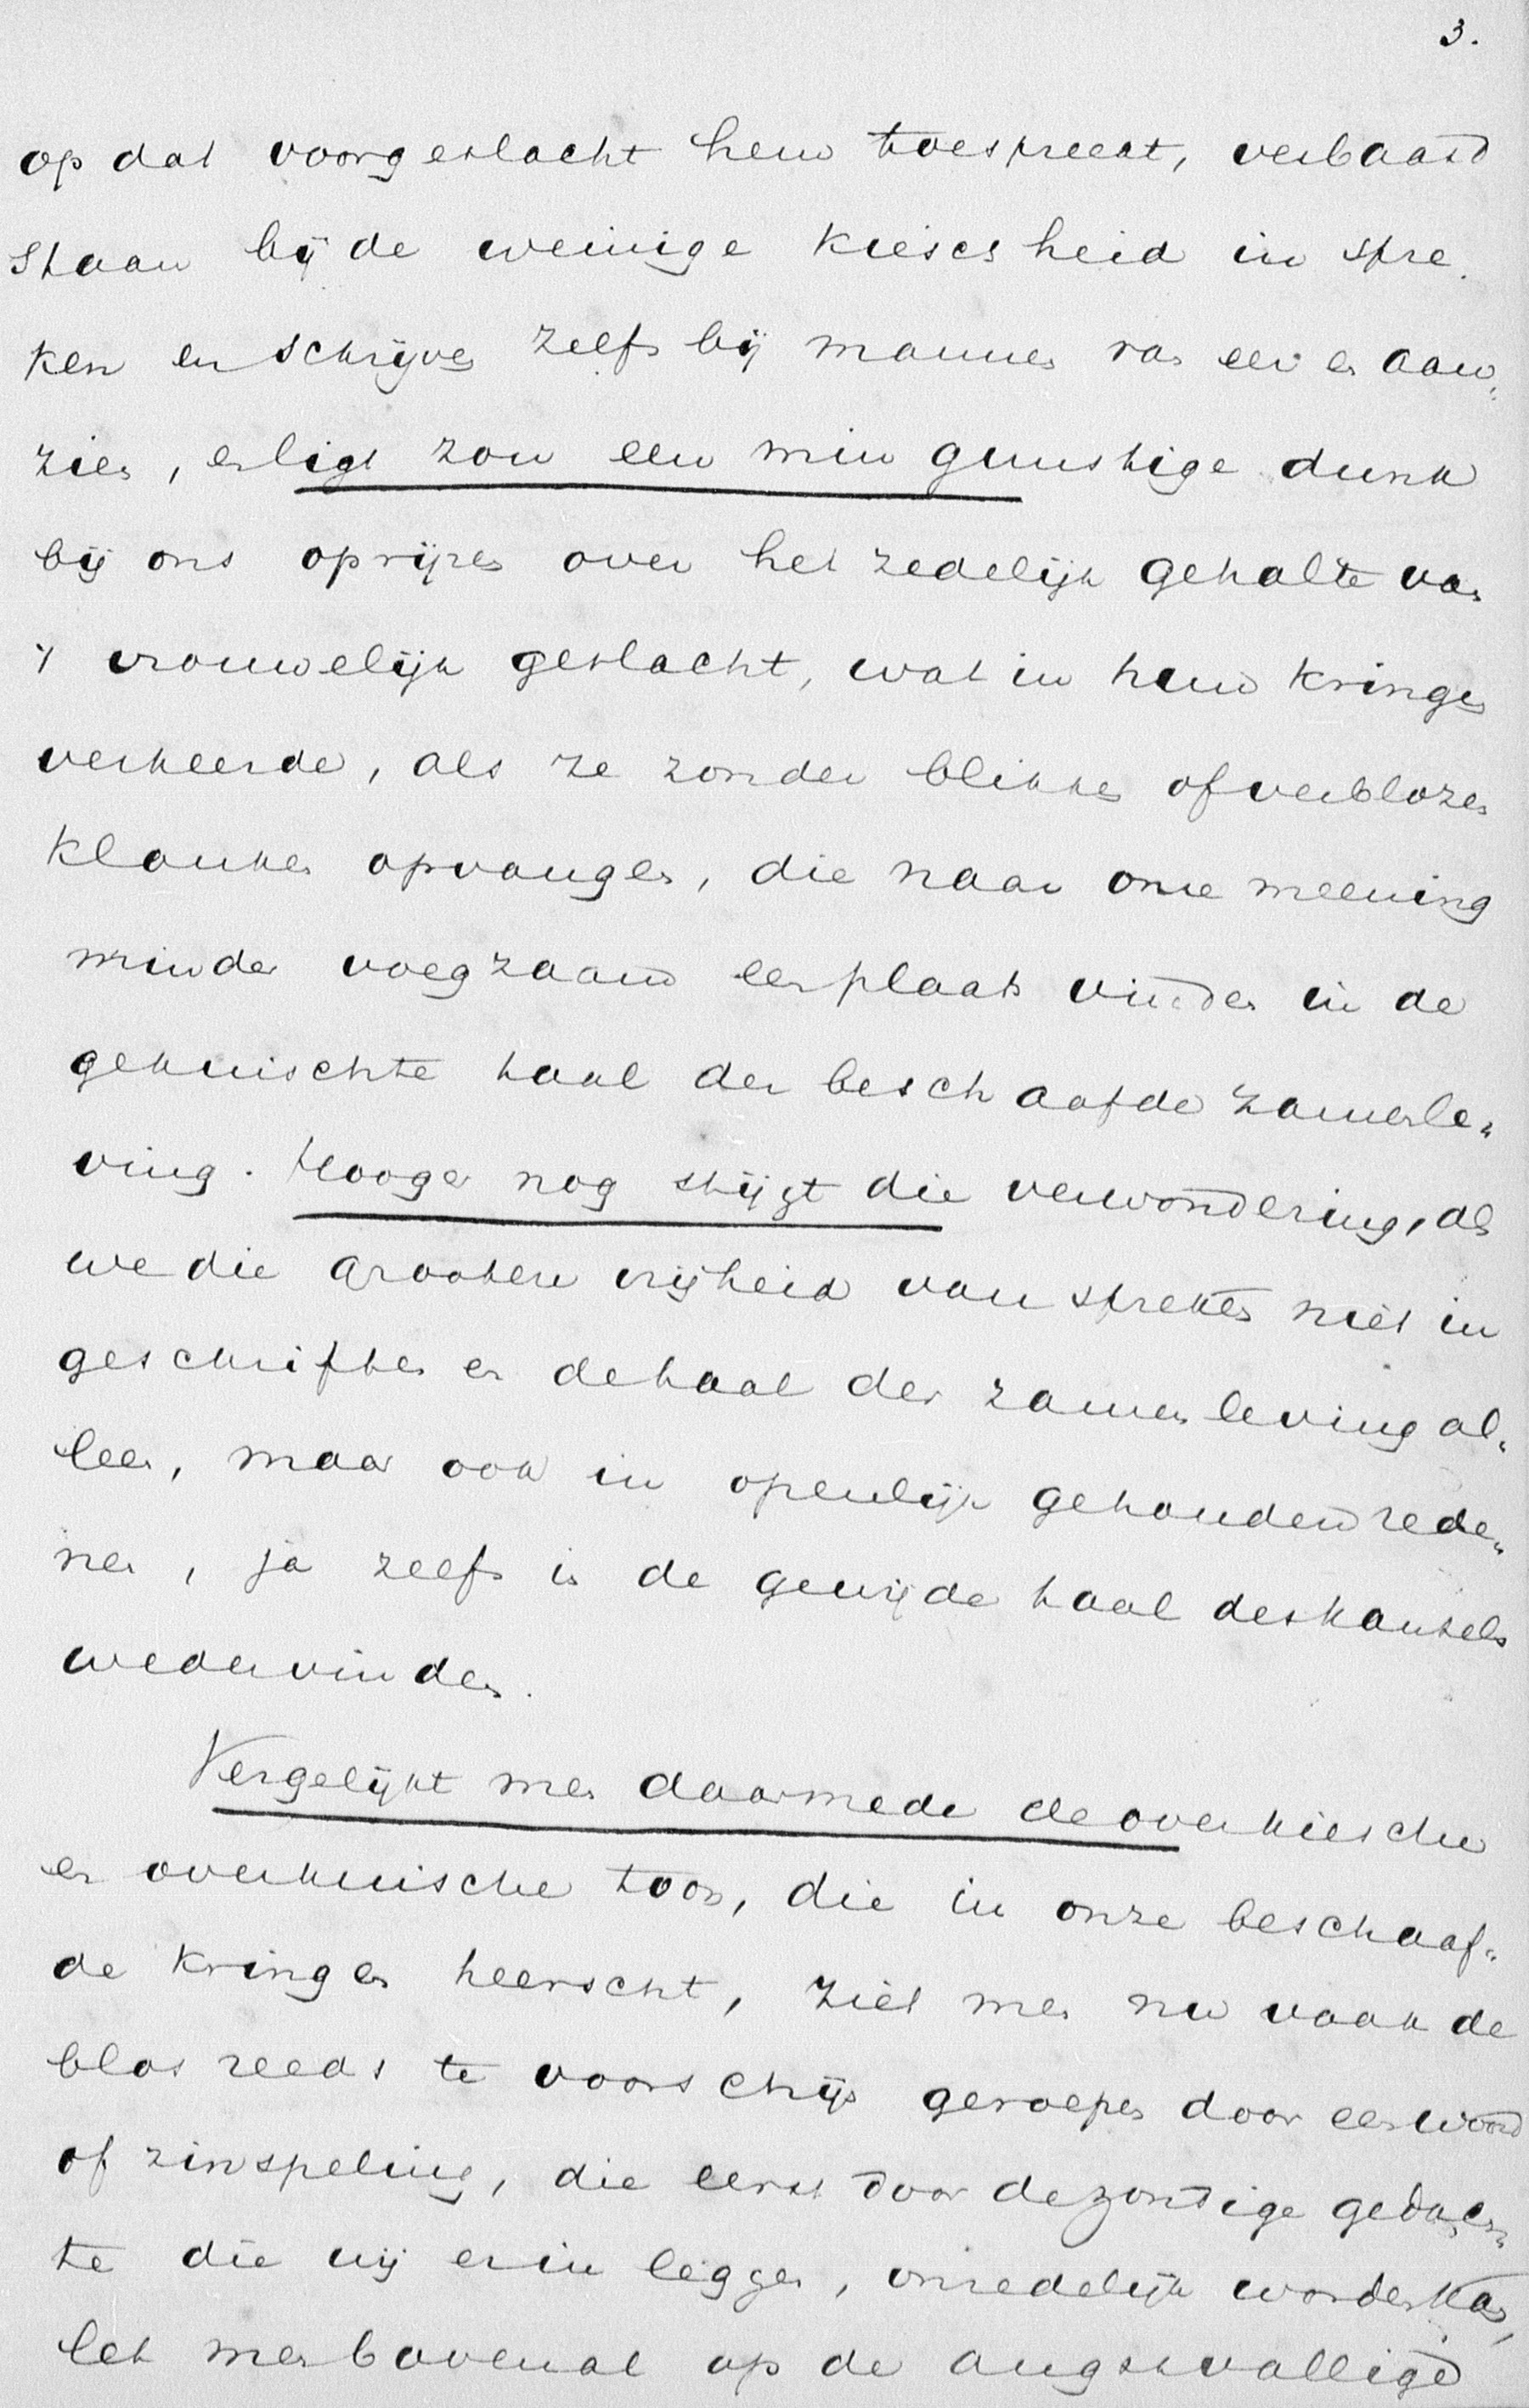 3.
op dat voorgeslacht hem toespreekt, verbaasd
staan bij de weinige kieschheid in spre-
ken en schrijven zelfs bij mannen van eer en aan-
zien, en ligt zou een min gunstige dunk
bij ons oprijzen over het zedelijk gehalte van
't vrouwelijk geslacht, wat in hun kringen
verkeerde, als ze zonder blikken of verblozen
klanken opvangen, die naar onze meening
minder voegzaam een plaats vinden in de
gekuischte taal der beschaafde zamenle-
ving. Hooger nog stijgt die verwondering, als
we die grootere vrijheid van spreken niet in
geschriften en de taal der zamenleving al-
leen, maar ook in openlijk gehouden rede-
nen, ja zelfs in de gewijde taal des kansels
wedervinden.
Vergelijkt men daarmede de overkiesche
en overkuische toon, die in onze beschaaf-
de kringen heerscht, ziet men nu vaak de
blos reeds te voorschijn geroepen door een woord
of zinspeling, die eerst door de zondige gedach-
te die wij erin leggen, onzedelijk worden kan,
let men bovenal op de angstvallige